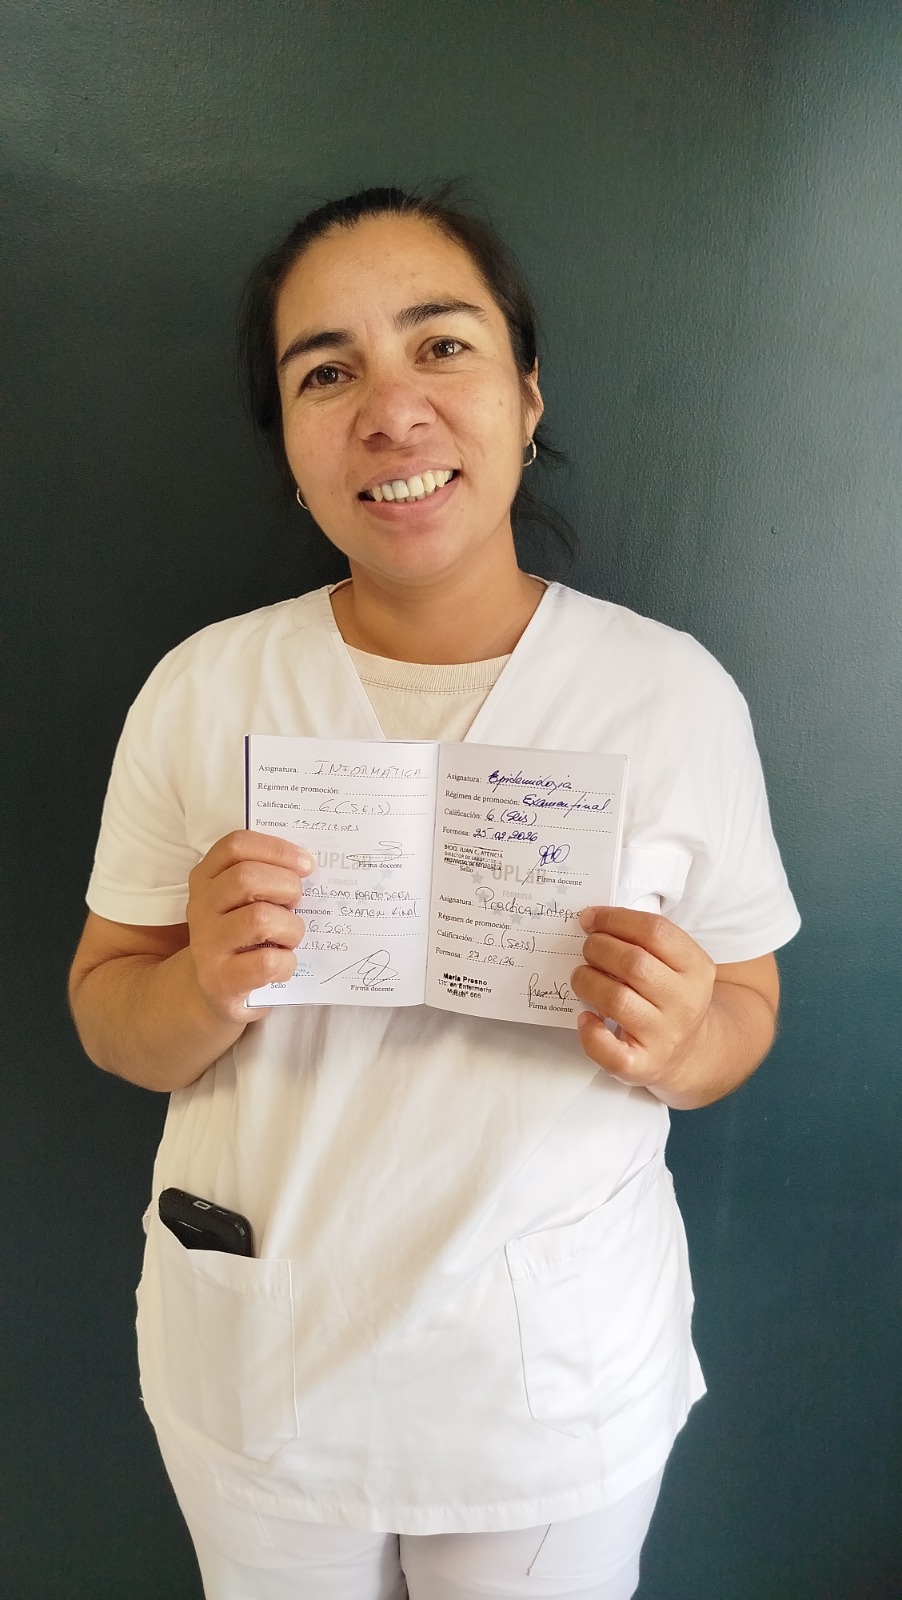 Asignatura: INFORMATICA
Régimen de promoción:
Calificación: 6 (SEIS)
Formosa:
Firma docente
REALIDAD
promoción: EXAMEN FINAL
6 SEIS
12/2025
Sello Firma docente
Asignatura: Epidemiologia
Régimen de promoción: Examen final
Calificación: 6 (Seis)
Formosa: 25/02/2026
BIOQ. JUAN C. ATENCIA
Sello Firma docente
UPLaB
FORMOSA
Asignatura: Practica
Régimen de promoción:
Calificación: 6 (Seis)
Formosa: 27/02/26
Maria Presno
Lic. en Enfermería
Firma docente